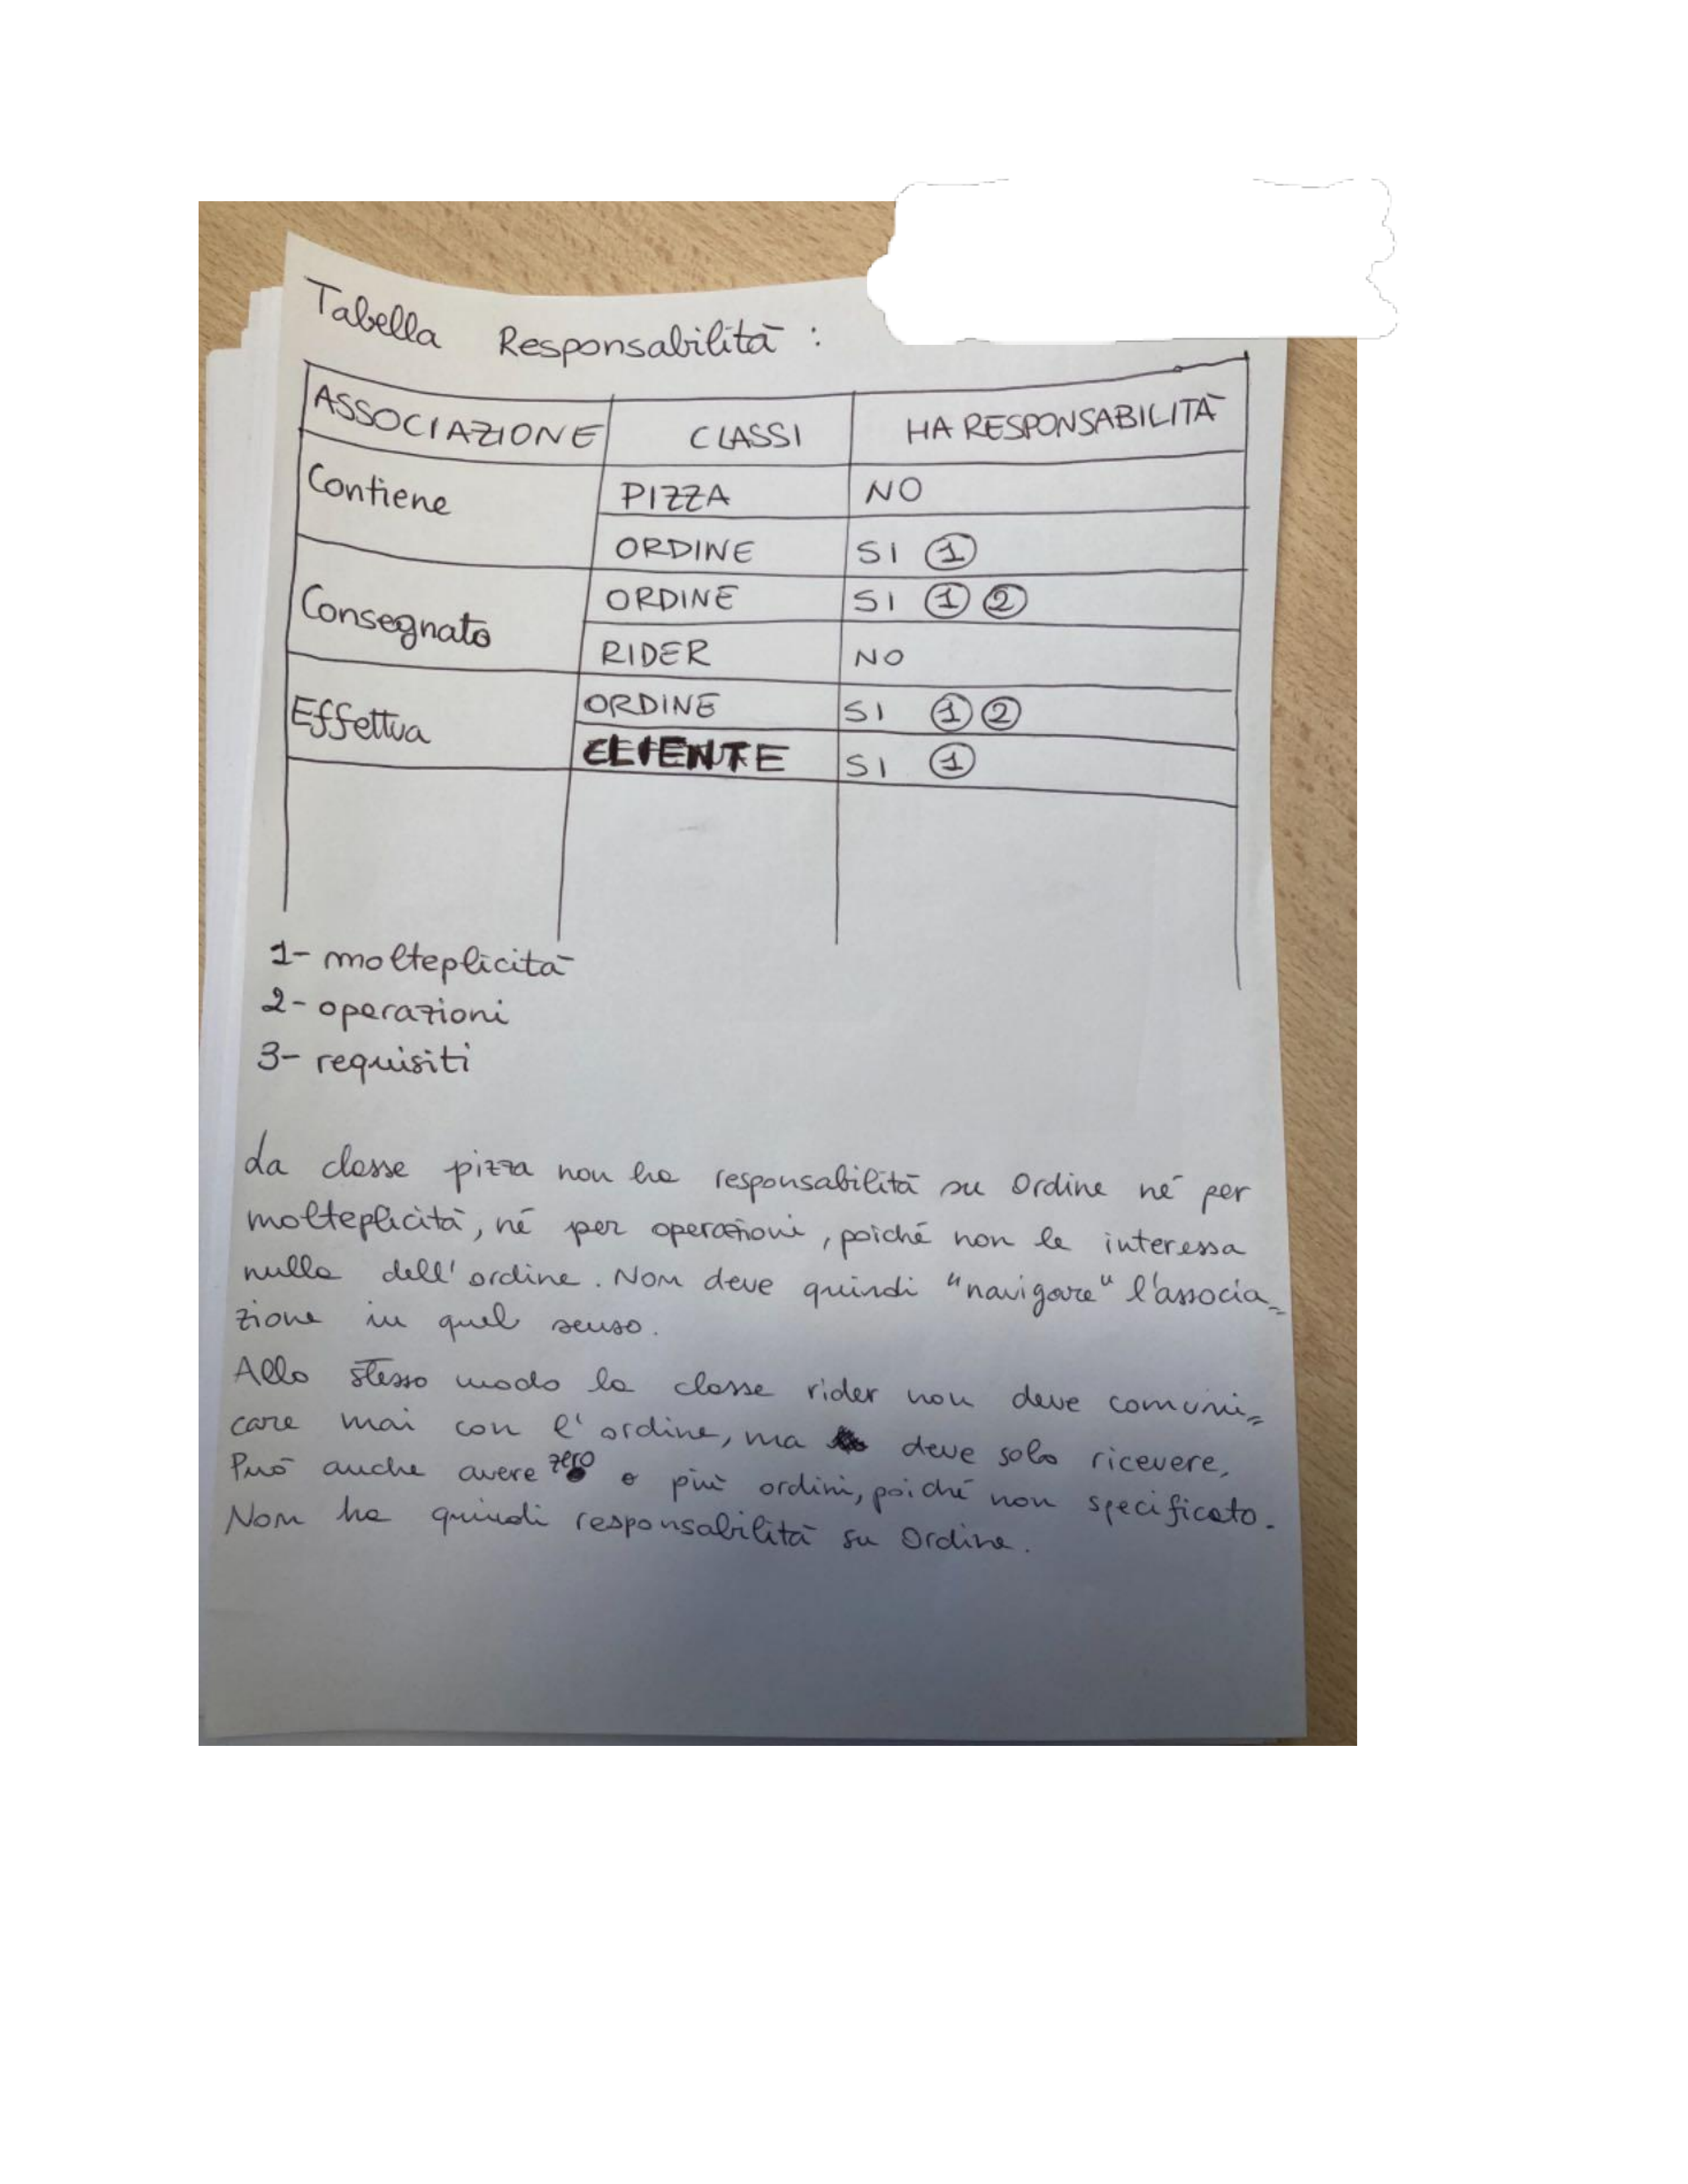 Tabella Responsabilità :
ASSOCIAZIONE CLASSI HA RESPONSABILITÀ
Contiene PIZZA NO
ORDINE SI ①
Consegnato ORDINE SI ① ②
RIDER NO
Effettua ORDINE SI ① ②
CLIENTE SI ①
1- molteplicità
2- operazioni
3- requisiti
La classe pizza non ha responsabilità su Ordine né per
molteplicità, né per operazioni, poiché non le interessa
nulla dell'ordine. Non deve quindi "navigare" l'associa=
zione in quel senso.
Allo stesso modo la classe rider non deve comuni=
care mai con l'ordine, ma deve solo ricevere.
Può anche avere zero o più ordini, poiché non specificato.
Non ha quindi responsabilità su Ordine.